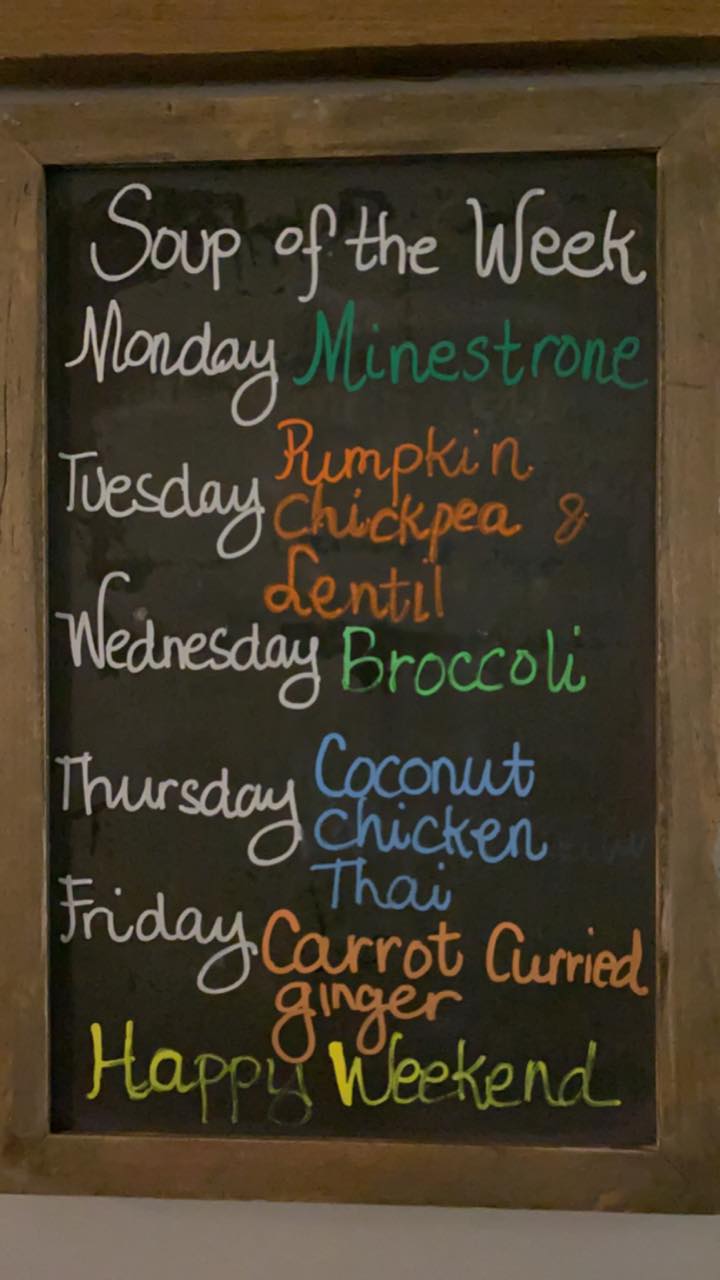 Soup of the Week
Monday Minestrone
Tuesday Pumpkin
Chickpea &
Lentil
Wednesday Broccoli
Thursday Coconut
Chicken
Thai
Friday Carrot Curried
ginger
Happy Weekend